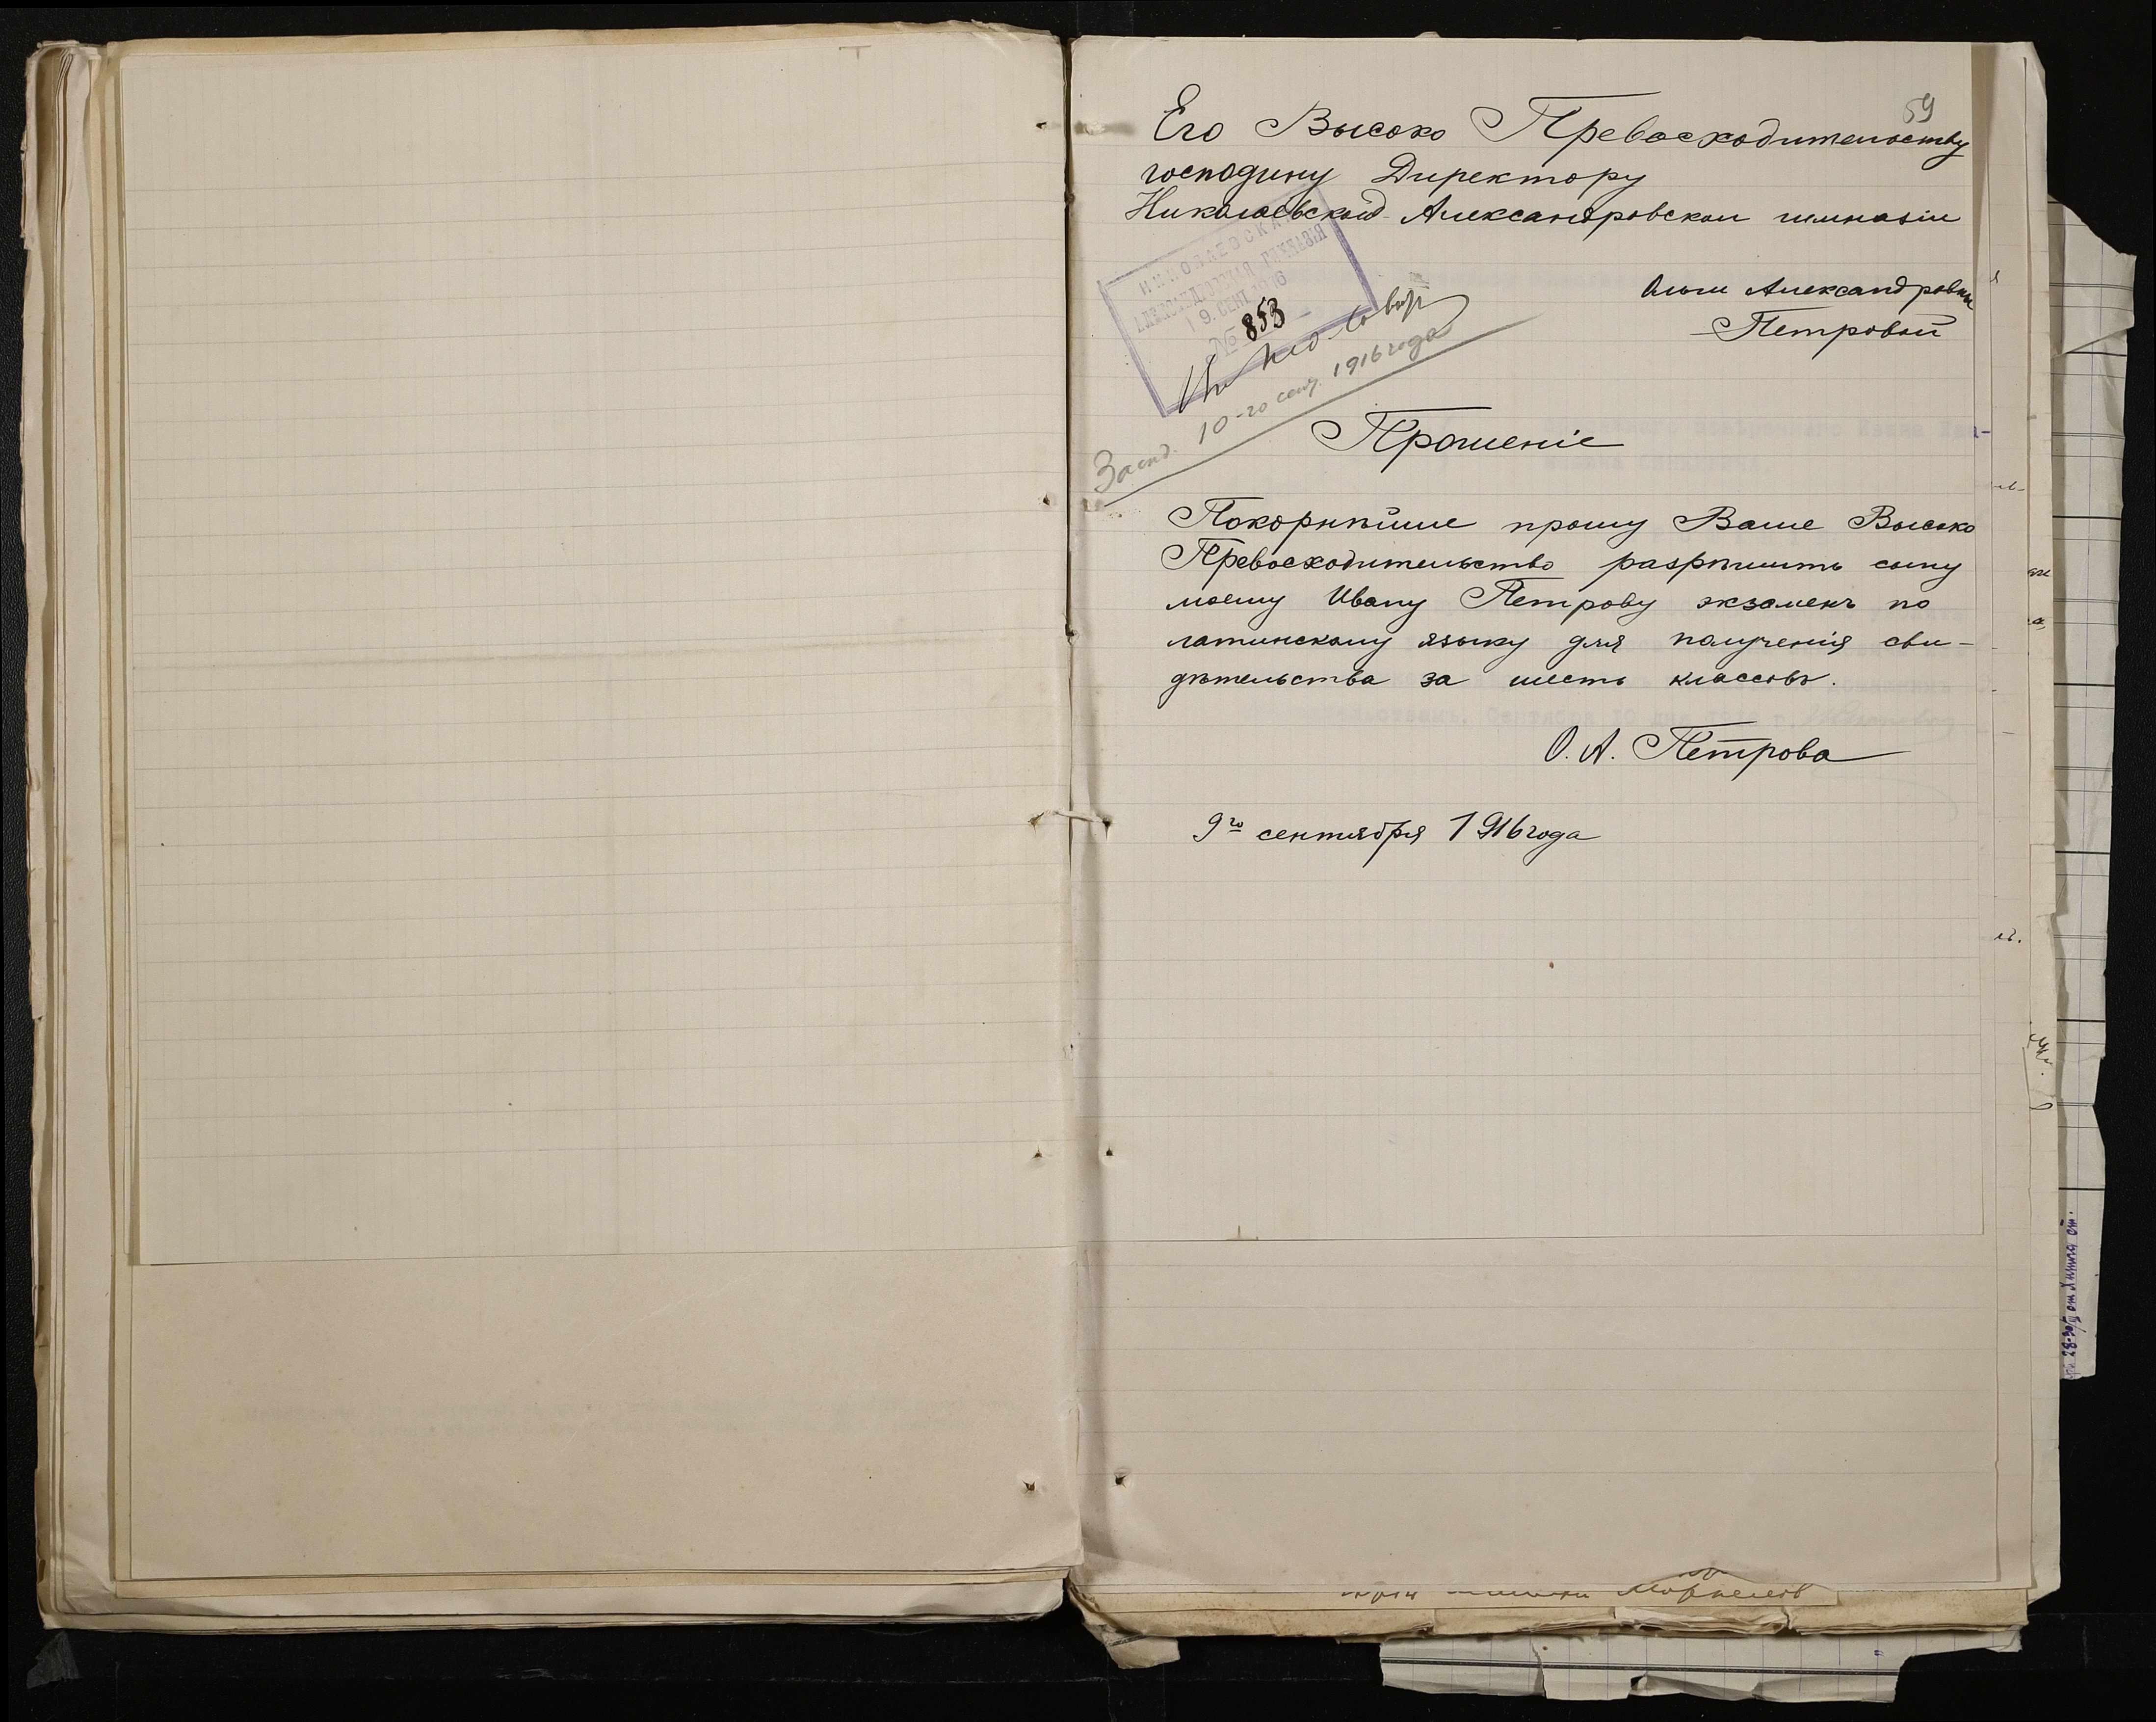 59
Его Высоко Превосходительству
господину Директору
Николаевской Александровской гимназіи
Ольги Александровны
Петровой
НИКОЛАЕВСКАЯ
АЛЕКСАНДРОВСКАЯ ГИМНАЗІЯ
9. СЕНТ. 1916
№ 853
Въ пед. совѣт
Засѣд. 10-го сент. 1916 года
Прошеніе
Покорнѣйше прошу Ваше Высоко
Превосходительство разрѣшить сыну
моему Ивану Петрову экзаменъ по
латинскому языку для полученія сви-
дѣтельства за шесть классовъ.
О. А. Петрова
9го сентября 1916 года